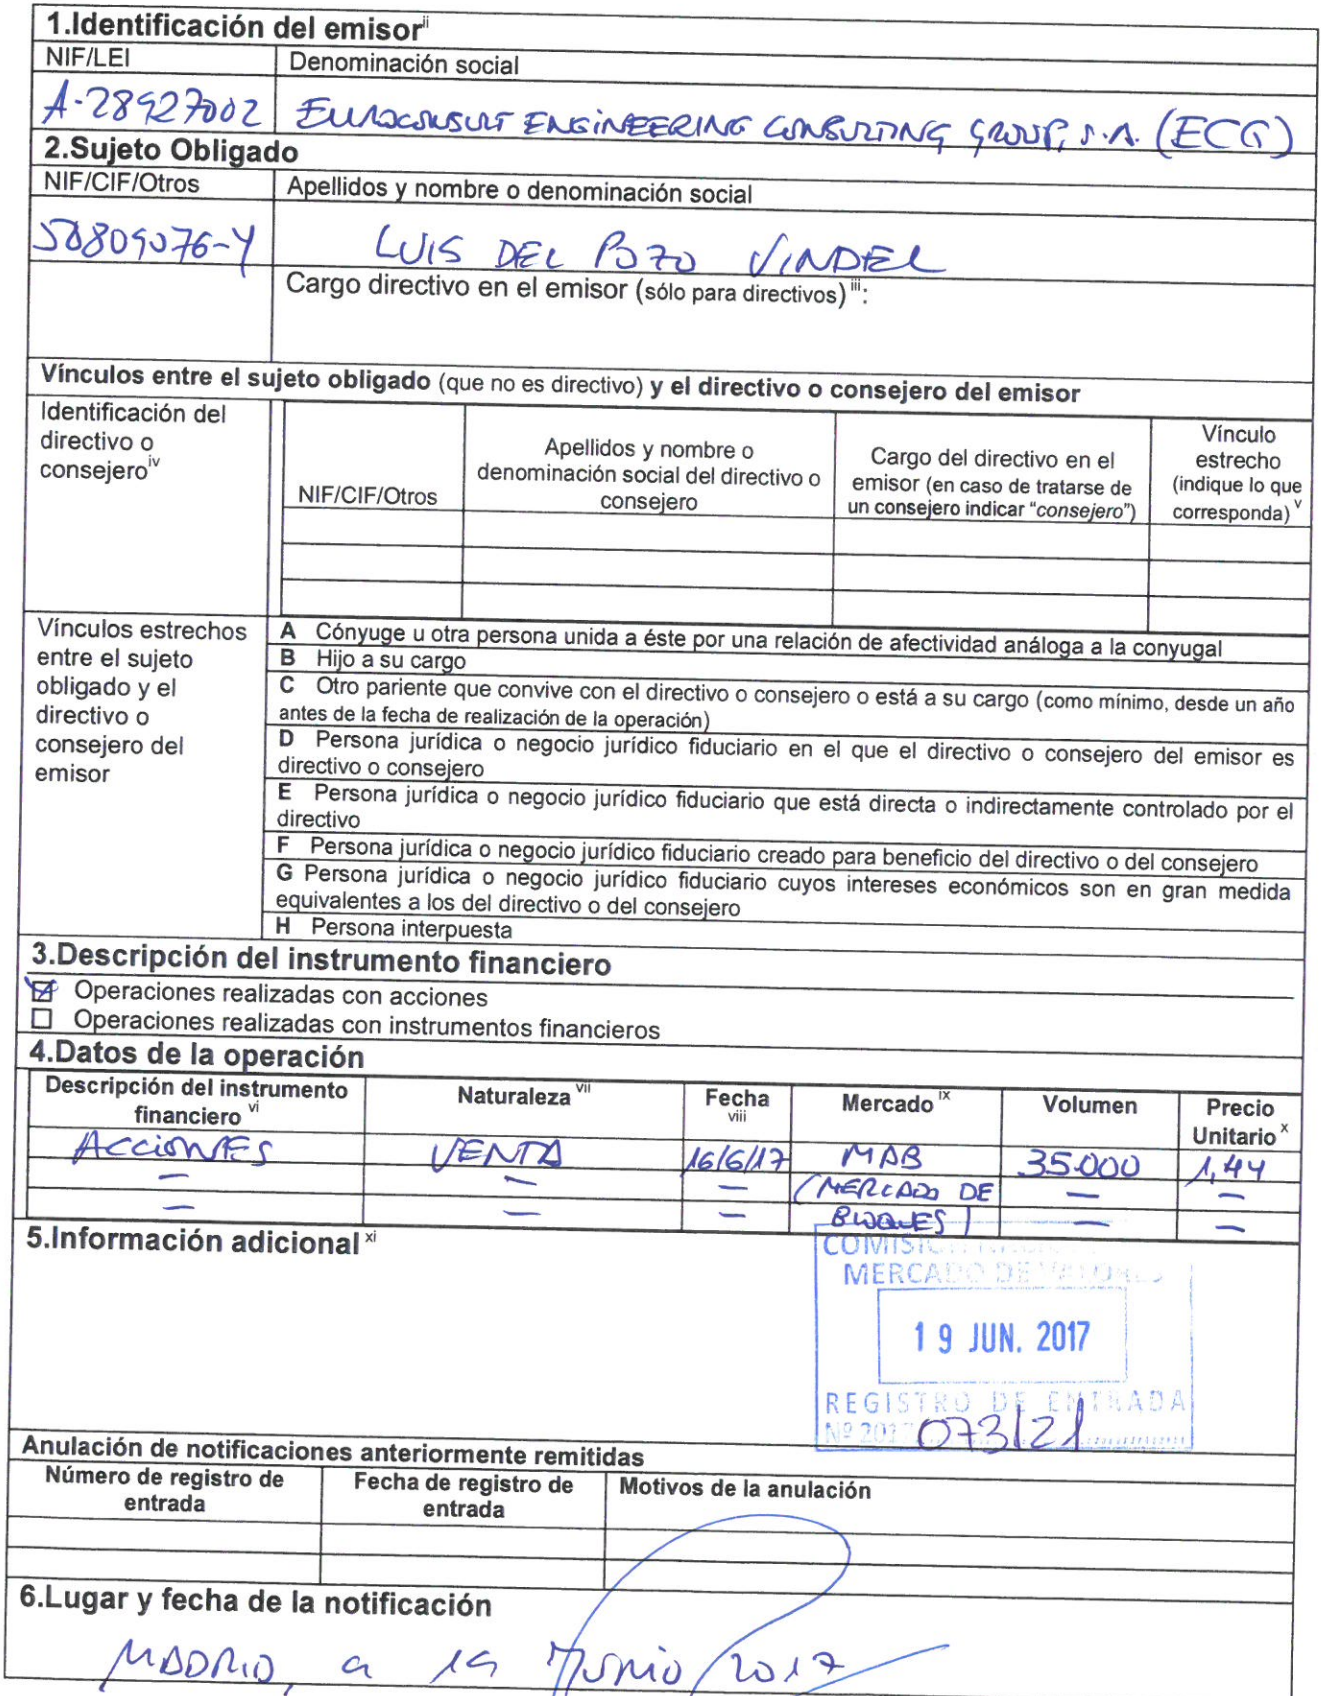 1.Identificación del emisor ii
NIF/LEI Denominación social
A-28927002 EUROCONSULT ENGINEERING CONSULTING GROUP, S.A. (ECG)
2.Sujeto Obligado
NIF/CIF/Otros Apellidos y nombre o denominación social
50809076-Y LUIS DEL POZO VINDEL
Cargo directivo en el emisor (sólo para directivos) iii:
Vínculos entre el sujeto obligado (que no es directivo) y el directivo o consejero del emisor
Identificación del
directivo o
consejero iv
NIF/CIF/Otros
Apellidos y nombre o
denominación social del directivo o
consejero
Cargo del directivo en el
emisor (en caso de tratarse de
un consejero indicar "consejero")
Vínculo
estrecho
(indique lo que
corresponda) v
Vínculos estrechos
entre el sujeto
obligado y el
directivo o
consejero del
emisor
A Cónyuge u otra persona unida a éste por una relación de afectividad análoga a la conyugal
B Hijo a su cargo
C Otro pariente que convive con el directivo o consejero o está a su cargo (como mínimo, desde un año
antes de la fecha de realización de la operación)
D Persona jurídica o negocio jurídico fiduciario en el que el directivo o consejero del emisor es
directivo o consejero
E Persona jurídica o negocio jurídico fiduciario que está directa o indirectamente controlado por el
directivo
F Persona jurídica o negocio jurídico fiduciario creado para beneficio del directivo o del consejero
G Persona jurídica o negocio jurídico fiduciario cuyos intereses económicos son en gran medida
equivalentes a los del directivo o del consejero
H Persona interpuesta
3.Descripción del instrumento financiero
☒ Operaciones realizadas con acciones
☐ Operaciones realizadas con instrumentos financieros
4.Datos de la operación
Descripción del instrumento
financiero vi
Naturaleza vii
Fecha
viii
Mercado ix
Volumen
Precio
Unitario x
ACCIONES VENTA 16/6/17 MAB 35.000 1,44
— — — (MERCADO DE — —
— — — BLOQUES) — —
5.Información adicional xi
MERCADO DE VALORES
19 JUN. 2017
REGISTRO DE ENTRADA
Nº 2017 073121
Anulación de notificaciones anteriormente remitidas
Número de registro de
entrada
Fecha de registro de
entrada
Motivos de la anulación
6.Lugar y fecha de la notificación
MADRID, a 19 JUNIO 2017